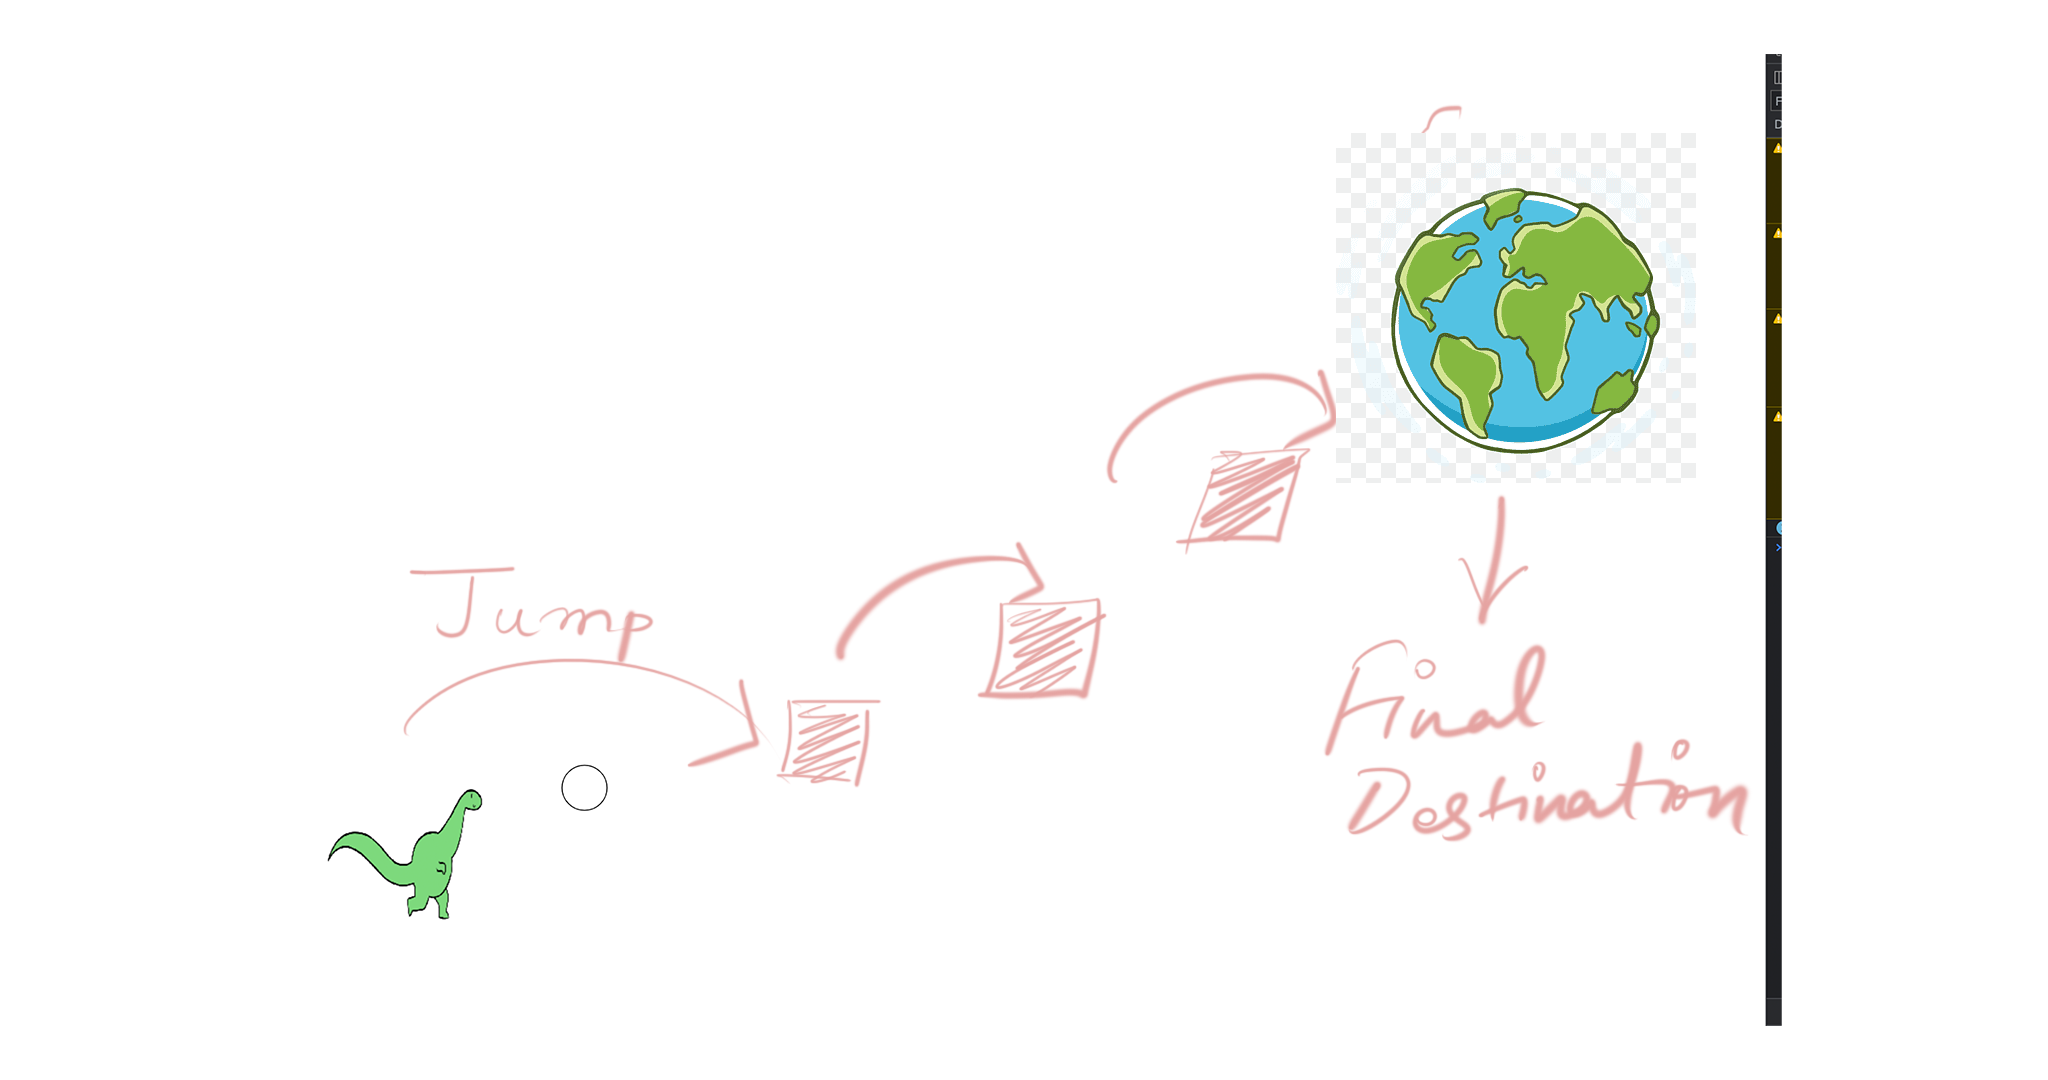 Jump
Final
Destination
F
D